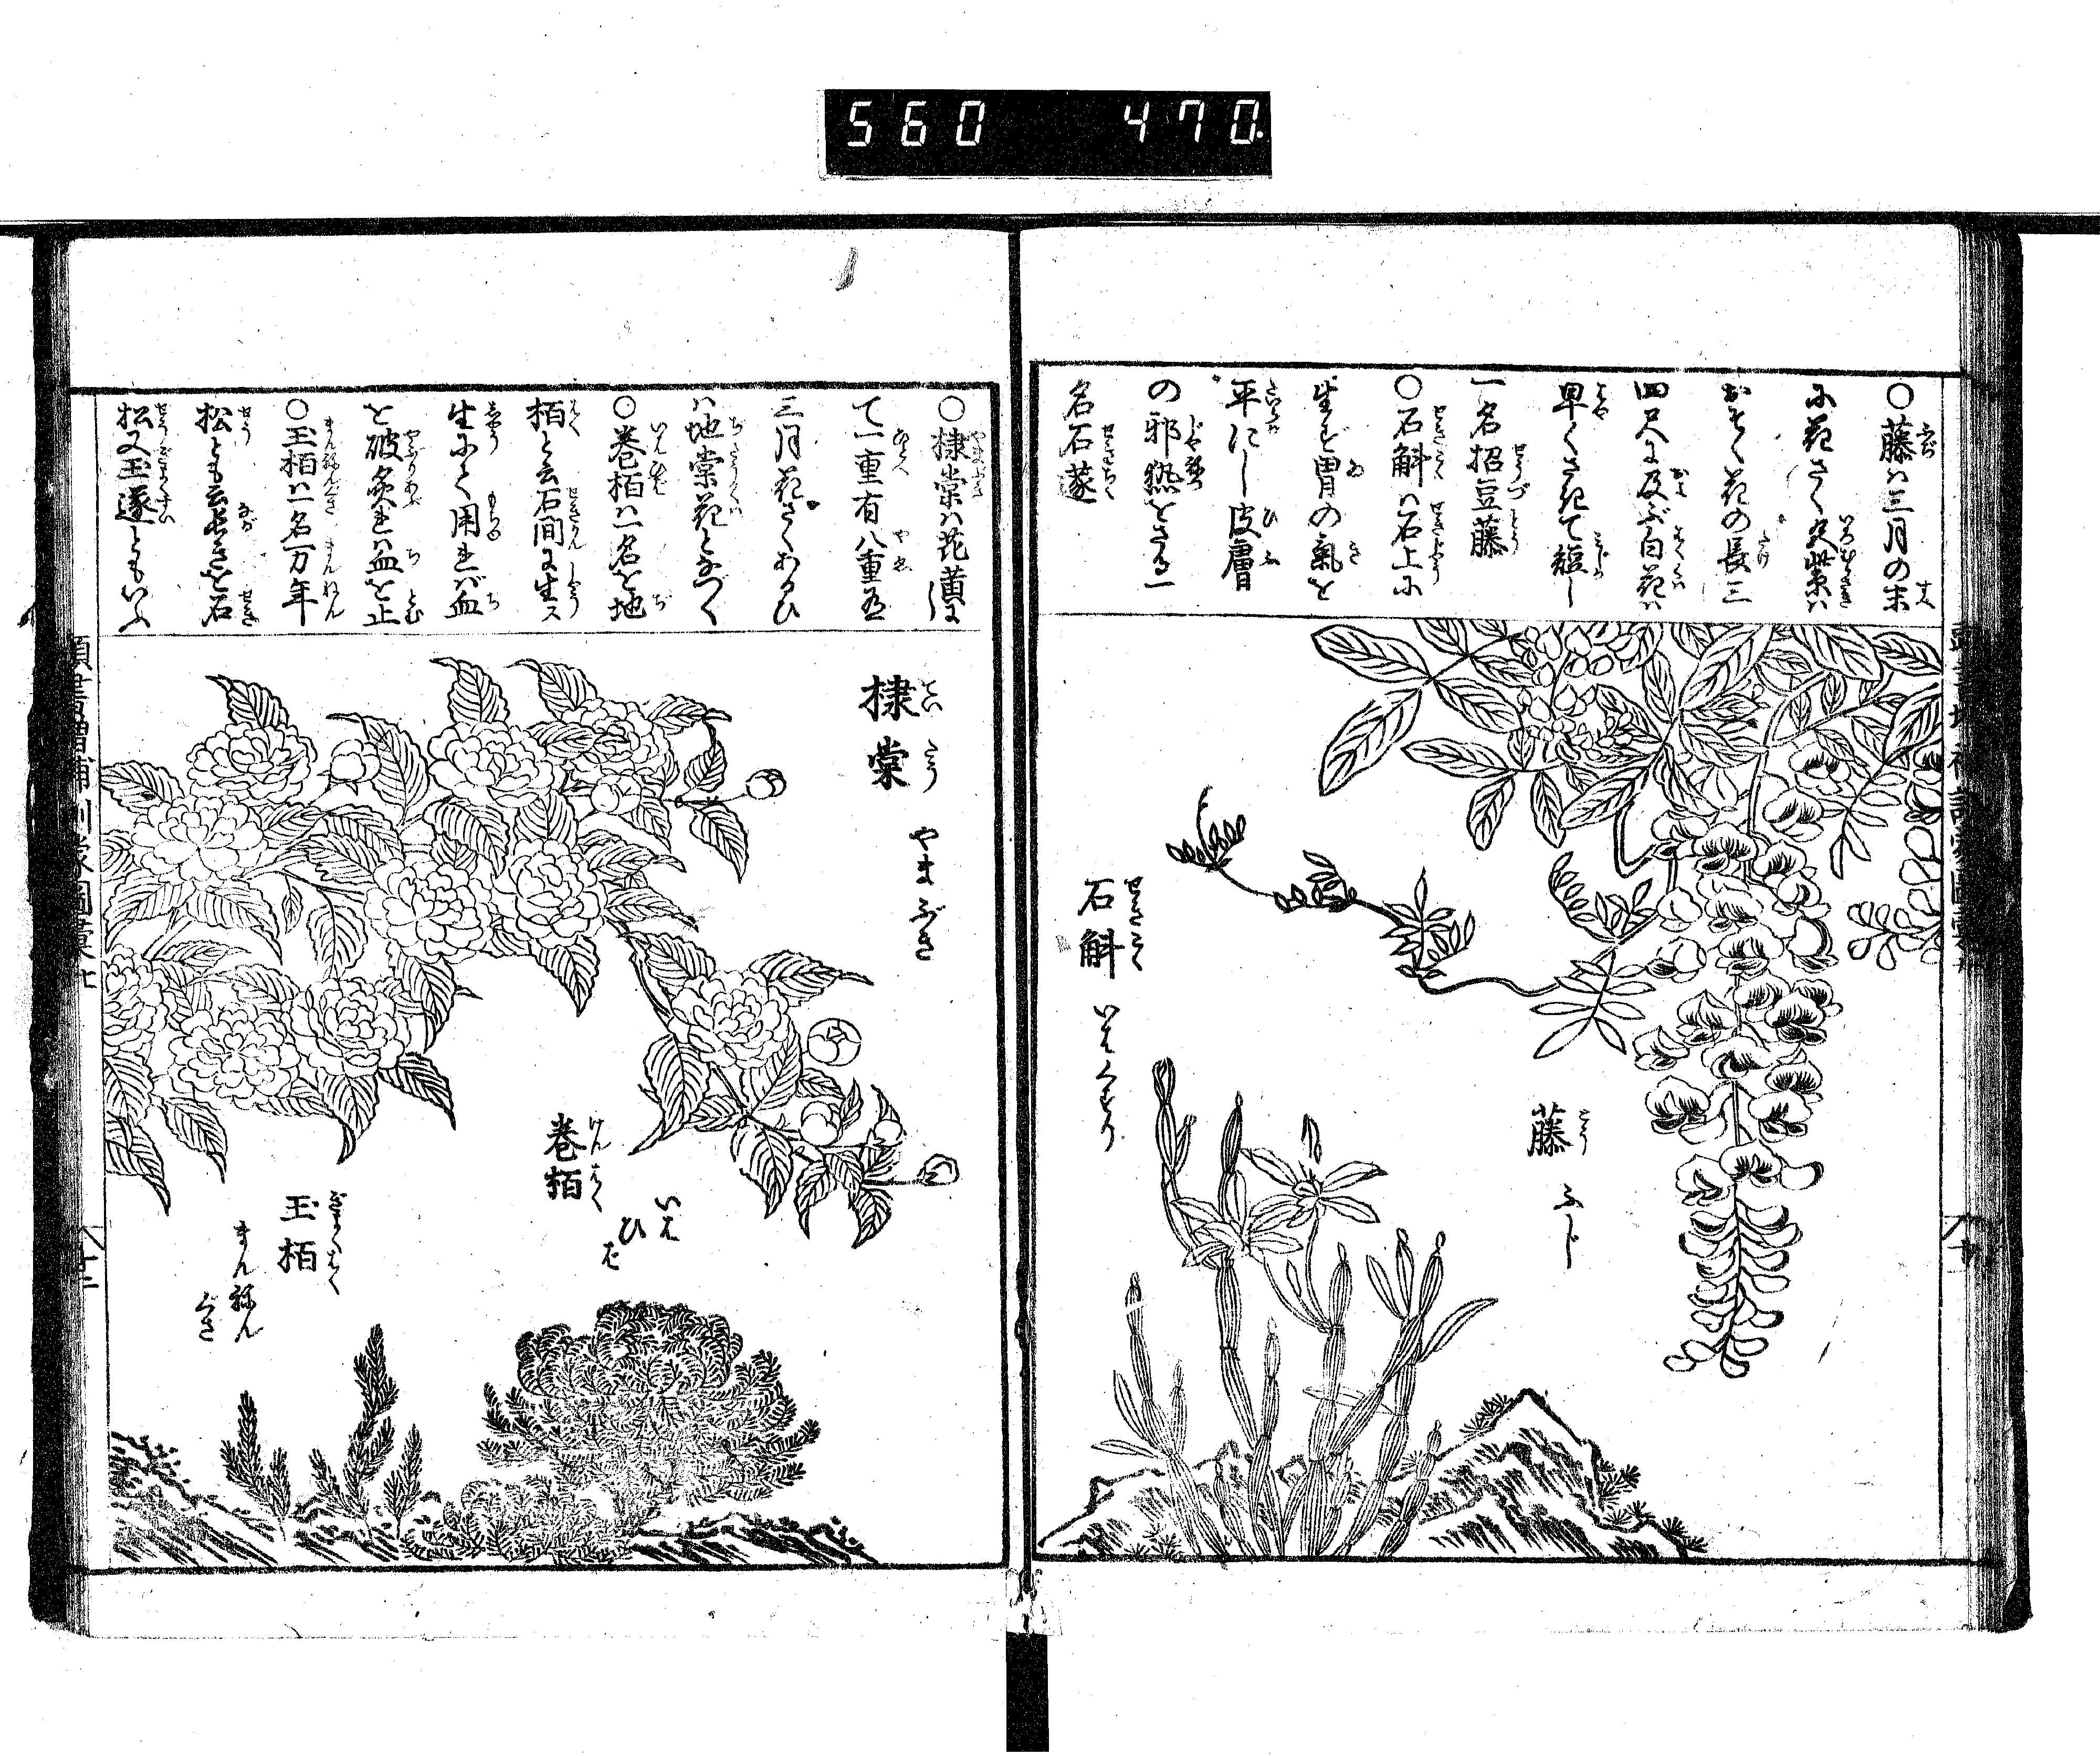 560 470.
○藤ハ三月の末
に花さく又紫ハ
おそく花の長三
四尺に及ぶ白花ハ
早くさきて短し
一名招豆藤
○石斛ハ石上に
生ず胃の氣を
平にし皮膚
の邪熱をさる一
名石蓫
藤 とう ふじ
石斛 せきこく いはぐすり
○棣棠ハ花黄に
て一重有八重有
三月花さくあるひ
ハ地棠花となづく
○巻栢ハ一名を地
栢と云石間に生ス
生にて用れバ血
を破炙れハ血を止
○玉栢ハ一名万年
松とも云長きを石
松又玉遂ともいふ
棣棠 ていとう やまぶき
巻栢 けんはく いはひば
玉栢 ぎよくはく まんねんぐさ
頭書増補訓蒙圖彙